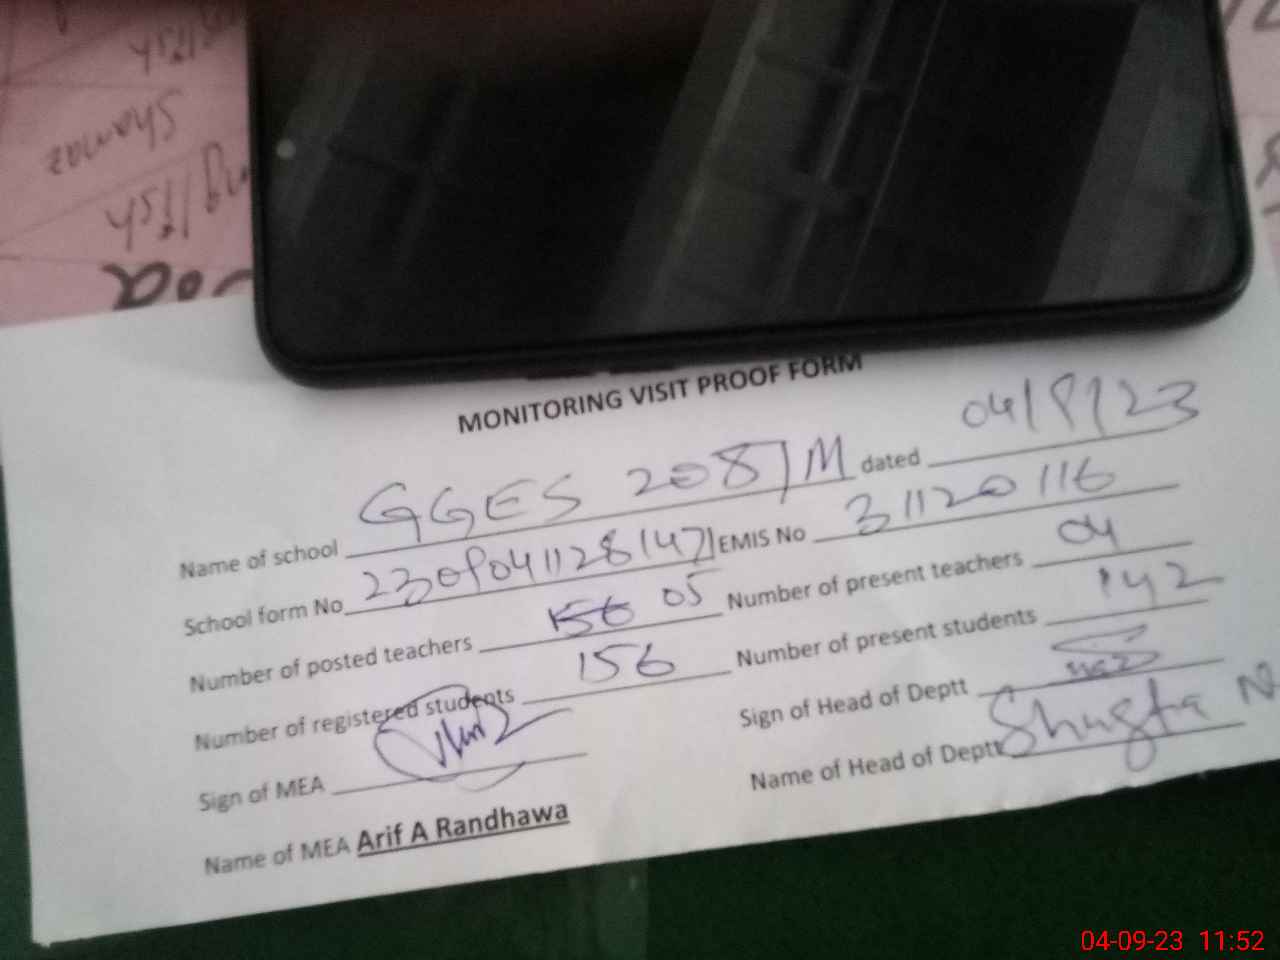 Shamaz
MONITORING VISIT PROOF FORM
Name of school GGES 208/M dated 04/9/23
School form No 23090411281471 EMIS No 31120116
Number of posted teachers 156 05 Number of present teachers 04
Number of registered students 156 Number of present students 142
Sign of MEA Sign of Head of Deptt
Name of MEA Arif A Randhawa Name of Head of Deptt Shugfta N
04-09-23 11:52